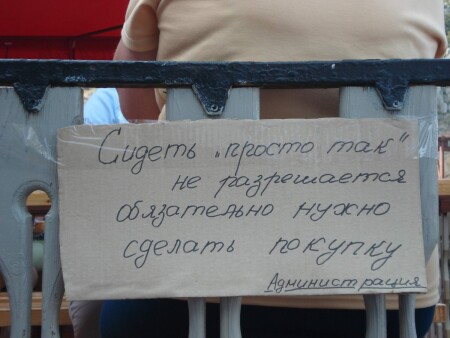 Сидеть „просто так“
не разрешается
обязательно нужно
сделать покупку
Администрация